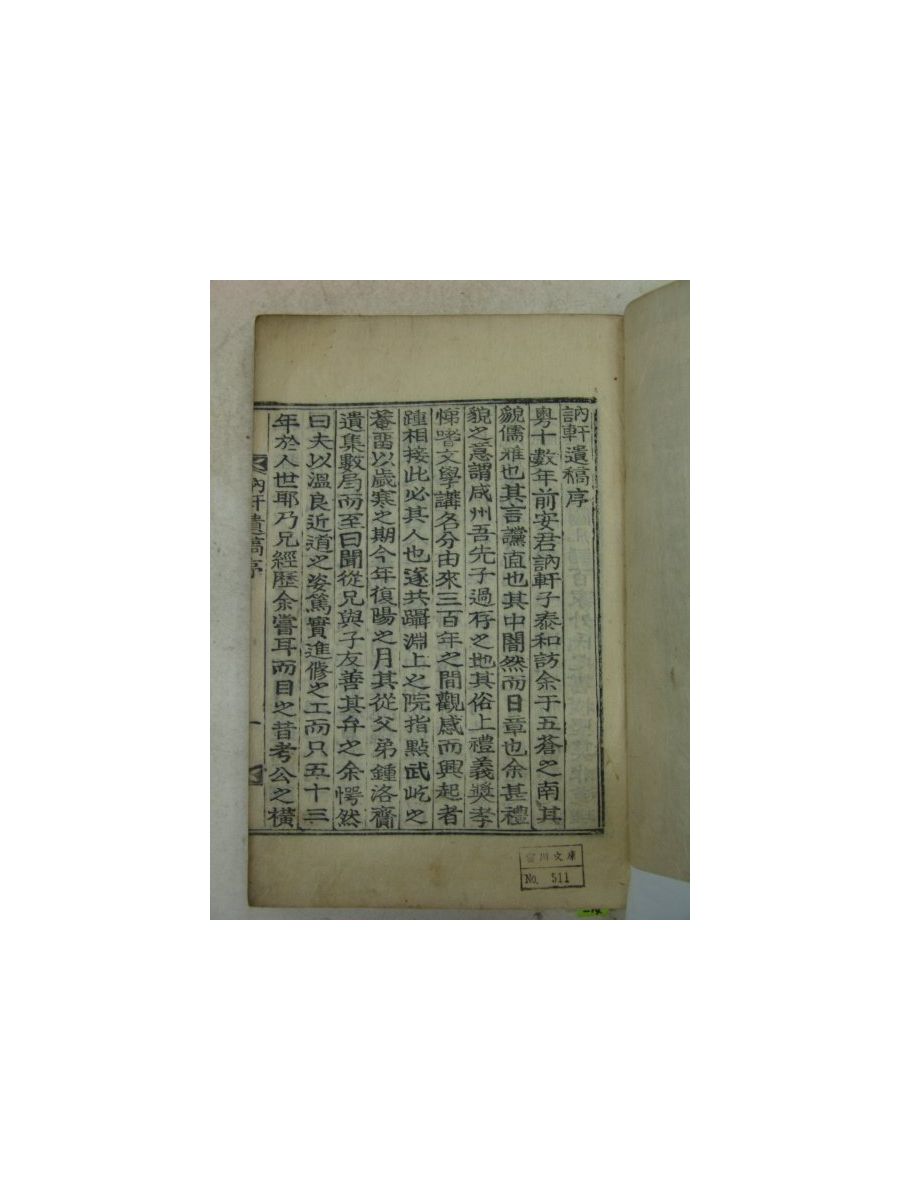 訥軒遺稿序
粤十數年前安君訥軒子泰和訪余于五蒼之南其
貌儒雅也其言讜直也其中闇然而日章也余甚禮
貌之意謂咸州吾先子過存之地其俗上禮義奬孝
悌嗜文學講名分由來三百年之間觀感而興起者
踵相接此必其人也遂共躡淵上之院指點武屹之
菴畱以歲寒之期今年復陽之月其從父弟鍾洛齎
遺集數局而至曰聞從兄與子友善其弁之余愕然
曰夫以溫良近道之姿篤實進修之工而只五十三
年於人世耶乃兄經歷余嘗耳而目之昔考公之橫
訥軒遺稿序
一
文庫
No. 511